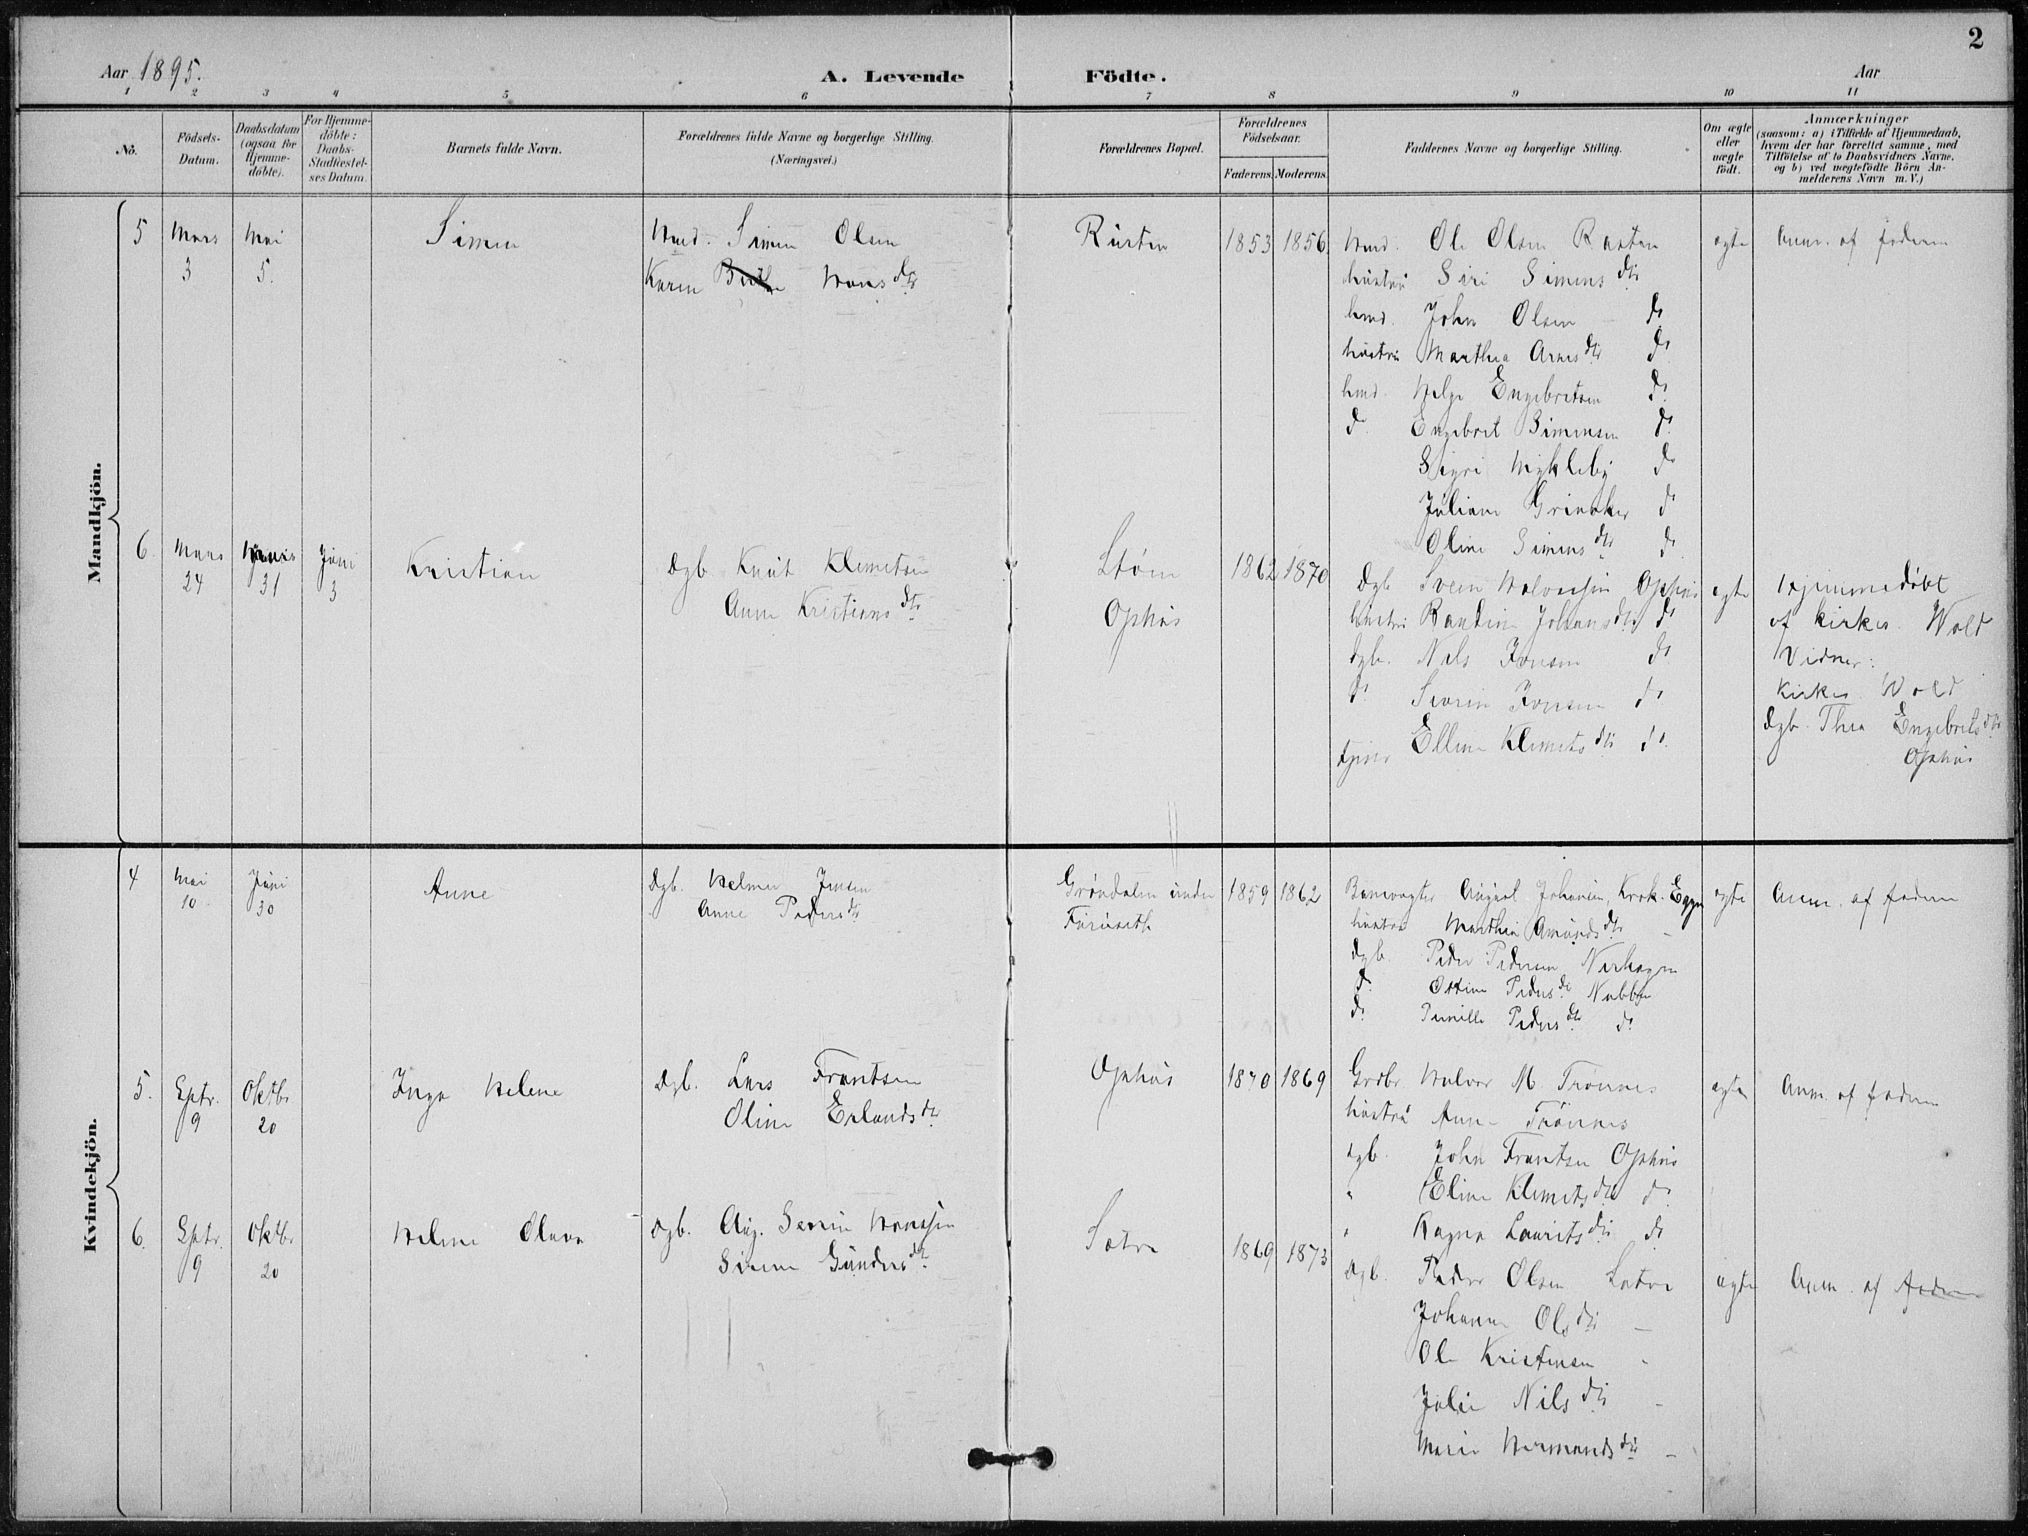 2
Aar 1895.
A. Levende Födte.
Aar
1 2 3 4 5 6 7 8 9 10 11
No.
Födsels-
Datum.
Daabsdatum
(ogsaa for
Hjemme-
döbte).
For Hjemme-
döbte:
Daabs-
Stadfæstel-
ses Datum.
Barnets fulde Navn.
Forældrenes fulde Navne og borgerlige Stilling.
(Næringsvei.)
Forældrenes Bopæl.
Forældrenes
Födselsaar.
Faderens. Moderens.
Faddernes Navne og borgerlige Stilling.
Om ægte
eller
uægte
födt.
Anmærkninger
(saasom: a) i Tilfælde af Hjemmedaab,
hvem der har forrettet samme, med
Tilföielse af to Daabsvidners Navne.
og b) ved uægtefödte Börn An-
melderens Navn m. V.)
Mandkjön.
5
Mars
3
Mai
5.
Simen
Hmd. Simen Olsen
Karen Hansdtr
Rusten
1853 1856
Hmd. Ole Olsen Rasten
hustru Siri Simensdtr
hmd. John Olsen do
hustru Marthea Arnesdtr do
hmd. Helge Engebretsen do
do Engebret Simensen do
Sigri Mykleby do
Juliane Grinaker do
Oline Simensdtr do
ægte
Anm. af faderen
6.
Mars
24
Mars
31
Juni
3
Kristian
Dgb. Knut Klemetsen
Anne Kristiansdtr
Strøm
Ophus
1862 1870
Dgb Svein Halvorsen Ophus
hustru Randine Johansdtr do
dgb. Nils Jonsen do
do Severin Jonsen do
Elline Klemetsdtr do
ægte
Hjemmedøbt
af kirkes. Wold
Vidner:
Kirkes. Wold
Dgb. Thea Engebretsdtr
Ophus
Kvindekjön.
4
Mai
10
Juni
30
Anne
Dgb. Helmer Jensen
Anne Pedersdtr
Grøndalen under
Furuseth
1859 1862
Banevogter August Johansen, Krok-Eggen
hustru Marthea Amundsdtr -
dgb. Peder Pedersen Nerhagen
do Oline Pedersdtr Nabben
do Pernille Pedersdtr do
ægte
Anm. af faderen
5.
Sptr.
9
Oktbr
20
Inga Helene
Dgb. Lars Frantsen
Oline Erlandsdtr
Ophus
1870 1869
Grdbr Halvor M. Trønnes
hustru Anne Trønnes
dgb. John Frantsen Ophus
" Eline Klemetsdtr do
" Ragna Lauritsdtr do
ægte
Anm. af faderen
6.
Sptr.
9
Oktbr
20
Helene Olava
Dgb. Aug. Severin Hanssen
Sirene Gundersdtr
Sætre
1869 1873
Dgb. Peder Olsen Sætre
Johanne Olsdtr -
Ole Kristensen -
Julie Nilsdtr -
Marie Hermandsdtr -
ægte
Anm. af faderen